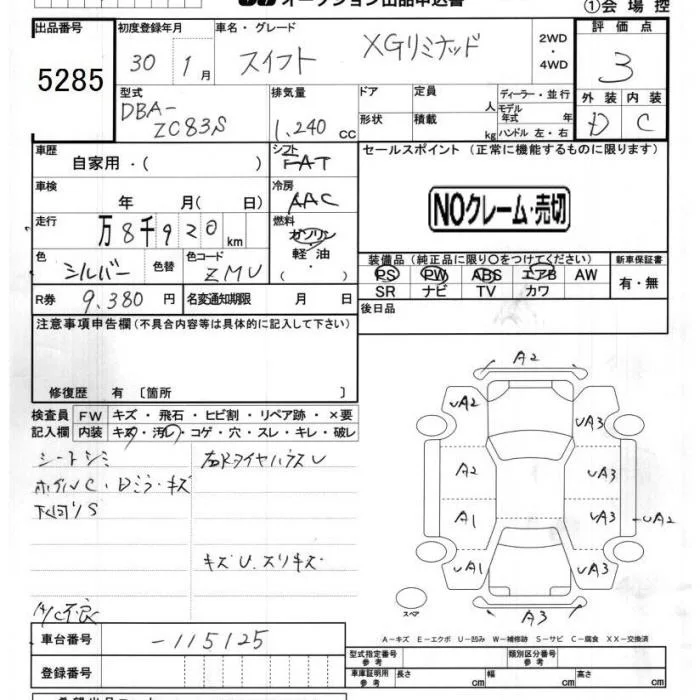 オークション出品申込書
①会場控
出品番号 初度登録年月 車名・グレード 評価点
5285 30 1月 スイフト XGリミテッド 2WD・4WD 3
型式 排気量 ドア 定員 人 ディーラー・並行 外装 内装
DBA-ZC83S 1,240 cc 形状 積載 kg モデル年式 年式 ハンドル 左・右 D C
車歴 シフト セールスポイント (正常に機能するものに限ります)
自家用・( ) FAT
車検 冷房
年 月( 日) AAC NOクレーム・売切
走行 燃料
万8千920km ガソリン
軽油
( ・ )
色 色替 色コード 装備品(純正品に限り〇をつけてください) 新車保証書
シルバー ZMU PS PW ABS エアB AW 有・無
SR ナビ TV カワ
R券 9,380円 名変通知期限 月 日 後日品
注意事項申告欄(不具合内容等は具体的に記入して下さい)
修復歴 有 〔箇所 〕
検査員 FW キズ・飛石・ヒビ割・リペア跡・×要
記入欄 内装 キズ・汚れ・コゲ・穴・スレ・キレ・破レ
シートシミ
ホイルC・Dミラーキズ
下回りS
右RタイヤハウスU
キズU、スリキズ
A/C不良
A2
UA2 UA3
A2 UA3
A1 UA3 UA2
UA1 UA3
A3
スペア
A-キズ E-エクボ U-凹み W-補修跡 S-サビ C-腐食 XX-交換済
車台番号 -115125
型式指定番号 参考 類別区分番号 参考
登録番号
車庫証明用 参考 長さ cm 幅 cm 高さ cm